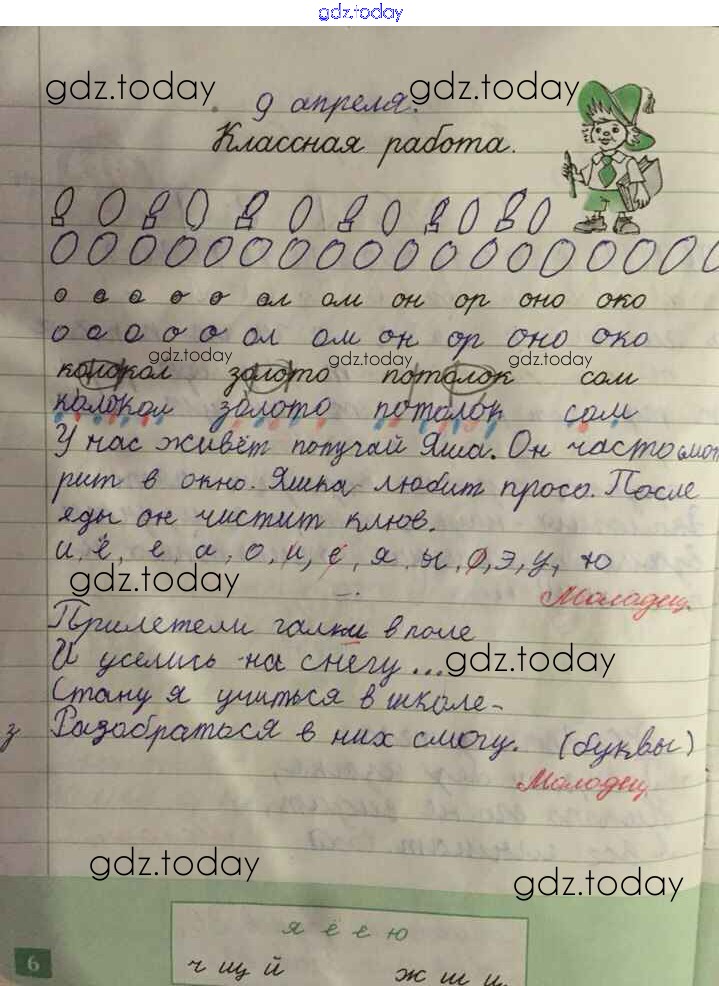 gdz.today
gdz.today gdz.today
9 апреля.
Классная работа.
о а о о о ол ом он ор оно око
о а о о о ол ом он ор оно око
gdz.today gdz.today gdz.today
колокол золото потолок сом
колокол золото потолок сом
У нас живёт попугай Яша. Он часто смот
рит в окно. Яшка любит просо. После
еды он чистит клюв.
и, ё, е, а, о, и, е, я, ы, о, э, у, ю
gdz.today
Молодец.
Прилетели галки в поле
И уселись на снегу...
gdz.today
Стану я учиться в школе-
з Разобраться в них смогу. (буквы)
Молодец
gdz.today gdz.today
я ё е ю
6 ч щ й ж ш ц